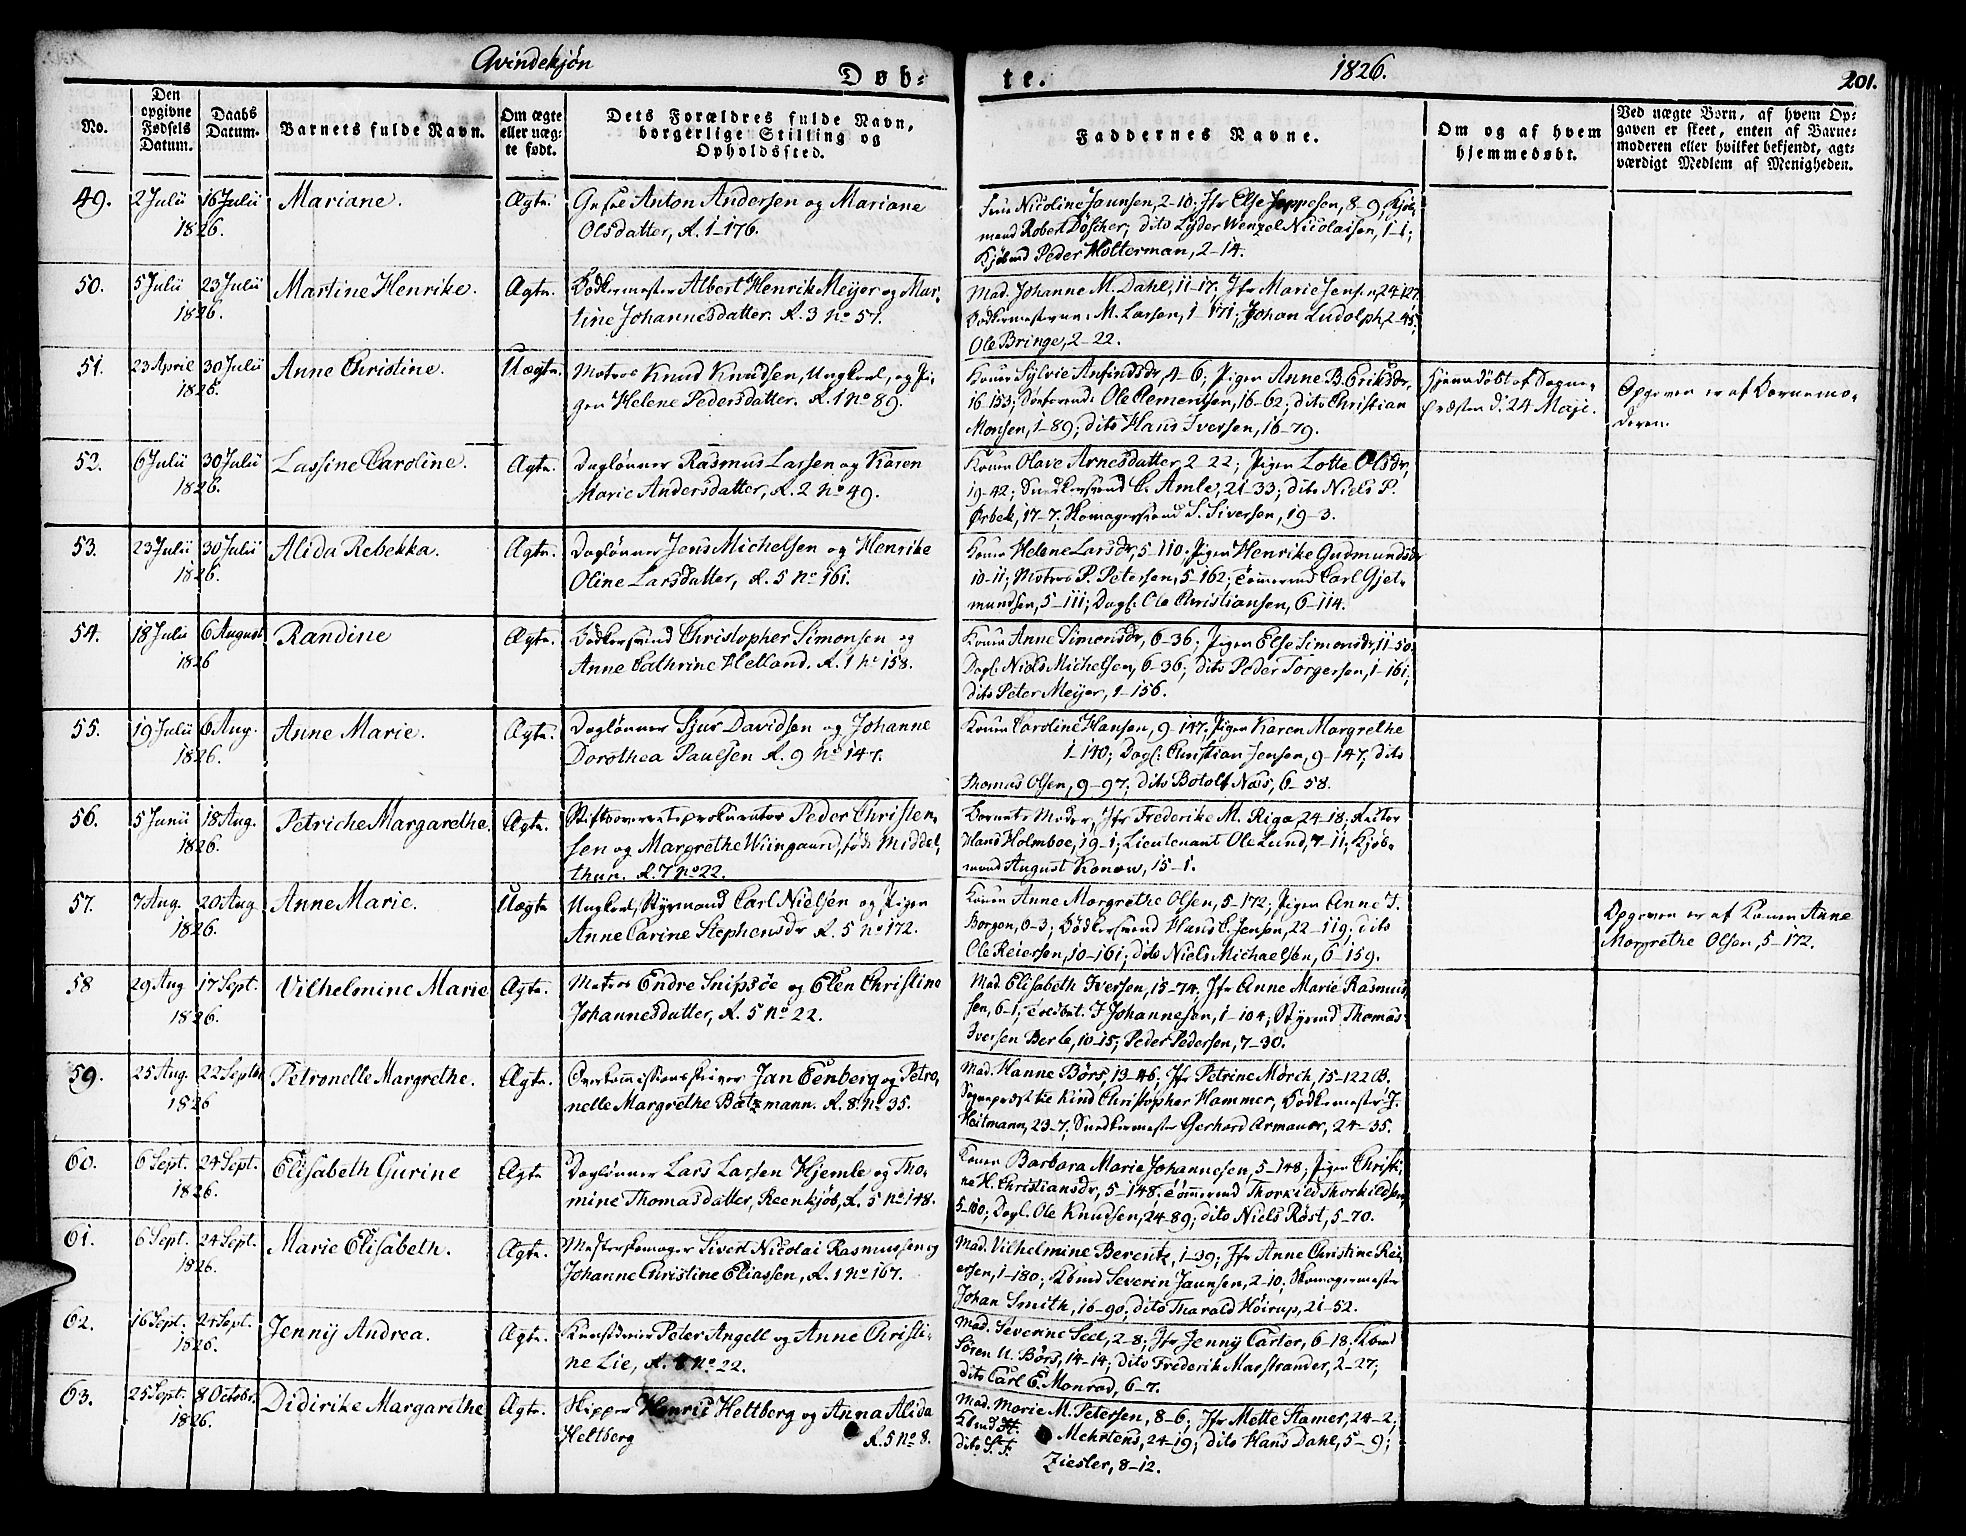 Qvindekjön
Døb-
te.
1826.
201.
No.
Den opgivne Fødsels Datum.
Daabs Datum.
Barnets fulde Navn.
Om ægte eller uægte født.
Dets Forældres fulde Navn, borgerlige Stilling og Opholdssted.
Faddernes Navne.
Om og af hvem hjemmedøbt.
Ved uægte Børn, af hvem Opgaven er skeet, enten af Barnemoderen eller hvilket bekjendt, agtværdigt Medlem af Menigheden.
49. 2 Julii 16 Julii Mariane. Ægte. Anton Andersen og Mariane
1826. Olsdatter, R. 1-176.
Nicoline Jaunsen, 2-10; Jfr Else Jeppesen, 8-9; Kjöb-
mand Robert Döscher; dito Lyder Wenzel Nicolaisen, 1-1;
Kjöbmd Peder Holterman, 2-14.
50. 5 Julii 23 Julii Martine Henrike. Ægte. Bödkermester Albert Henrik Meyer og Mar-
1826. tine Johannesdatter. R. 3 No 57.
Mad. Johanne M. Dahl, 11-17; Jfr Marie Jensen, 24-127.
Bödkermesterne: M. Larsen, 1-171; Johan Ludolph, 2-45;
Ole Bringe, 2-22.
51. 23 April 30 Julii Anne Christine. Uægte. Matros Knud Knudsen, Ungkarl, og Pi-
1826. gen Helene Pedersdatter. R. 1 No 89.
Konen Sylvie Anfindsdr, 4-6; Pigen Anne B. Eriksdr,
16-153; Ole Clementsen, 16-62; dito Christian
Monsen, 1-89; dito Hans Iversen, 16-79.
Hjemmedöbt af Sogne-
Præsten d. 24 Maji.
Opgaven er af Barnemo-
deren.
52. 6 Julii 30 Julii Lassine Caroline. Ægte. Daglönner Rasmus Larsen og Karen
1826. Marie Andersdatter, R. 2 No 49.
Konen Olave Arnesdatter, 2-22; Pigen Lotte Olsdr,
19-42; Snedkersvend C. Amle, 21-33; dito Niels P.
Ørbek, 17-7; Skomagersvend S. Siversen, 19-3.
53. 23 Julii 30 Julii Alida Rebekka. Ægte. Daglönner Jens Michelsen og Henrike
1826. Oline Larsdatter, R. 5 No 161.
Konen Helene Larsdr, 5-110. Pigen Henrike Gudmundsdr
10-11; Matros P. Petersen, 5-162; Tömmermd Carl Gjet-
mundsen, 5-111; Dagl: Ole Christiansen, 6-114.
54. 18 Julii 6 August Randine Ægte. Bödkersvend Christopher Simonsen og
1826 Anne Cathrine Helland. R. 1 No 158.
Konen Anne Simonsdr, 6-36; Pigen Else Simonsdr, 11-50.
Dagl: Niels Michelsen, 6-36; dito Peder Torgersen, 1-161;
dito Peter Meyer, 1-156.
55. 19 Julii 6 Aug. Anne Marie. Ægte. Daglönner Sjur Davidsen og Johanne
1826. Dorothea Paulsen R. 9 No 147.
Konen Caroline Hansen, 9-147; Pigen Karen Margrethe
1-140; Dagl: Christian Jensen, 9-147; dito
Thomas Olsen, 9-97; dito Botolf Næs, 6-58.
56. 5 Junii 18 Aug. Petriche Margarethe. Ægte. Stiftsoverretsprokurator Peder Christen-
1826. sen og Margrethe Wiingaard, föd Middel-
thun. R. 7 No 22.
Barnets Moder, Jfr Frederike M. Riga, 24-18; Rector
Hans Holmboe, 19-1; Lieutenant Ole Lund, 7-11; Kjöb-
mand August Konow, 15-1.
57. 7 Aug. 20 Aug Anne Marie. Uægte Ungkarl, Styrmand Carl Nielsen og Pigen
1826. Anne Carine Stephensdr R. 5 No 172.
Konen Anne Margrethe Olsen, 5-172; Pigen Anne T.
Borgen, 0-3; Bödkersvend Hans C. Jensen, 22-119; dito
Ole Reiersen, 10-161; dito Niels Michaelsen, 6-159.
Opgaven er af Konen Anne
Margrethe Olsen, 5-172.
58 29 Aug 17 Sept. Vilhelmine Marie Ægte. Matros Endre Snipsöe og Elen Christine
1826. Johannesdatter, R. 5 No 22.
Mad. Elisabeth Iversen, 15-74; Jfr Anne Marie Rasmus-
sen, 6-1; I Johannesen, 1-104; Styrmd Thomas
Iversen Berle, 10-15; Peder Pedersen, 7-30.
59. 25 Aug. 22 Septbr Petronelle Margrethe. Ægte. Overkommissionsskriver Jan Eenberg og Petro-
1826 nelle Margrethe Batzmann. R. 8. No 35.
Mad. Hanne Börs, 13-46; Jfr Petrine Mörch, 15-122 B.
Sognepræst til Kind Christopher Hammer, Bödkermester J.
Heitmann, 23-7; Snedkermester Gerhard Armauer, 24-35.
60. 6 Sept. 24 Sept. Elisabeth Gurine Ægte Daglönner Lars Larsen Hjemle og Tho-
1826. mine Thomasdatter, Reenkjöb, R. 5 No 148.
Konen Barbara Marie Johannesen, 5-148; Pigen Christi-
ne H. Christiansdr, 5-148. Tömmermd Thorkild Thorkildsen,
5-160; Dagl. Ole Knudsen, 24-89; dito Niels Röst, 5-70.
61. 6 Sept. 24 Sept. Marie Elisabeth. Ægte. Mesterskomager Sivert Nicolai Rasmussen og
1826. Johanne Christine Eliassen, R. 1 No 167.
Mad. Vilhelmine Berentz, 1-39; Jfr Anne Christine Rei-
ersen, 1-180; Kbmd Severin Jaunsen, 2-10; Skomagermester
Johan Smith, 16-90; dito Tharald Höirup, 21-52.
62. 16 Sept. 24 Sept. Jenny Andrea. Ægte. Peter Angell og Anne Christi-
1826. ne Lie, R. 8 No 22.
Mad. Severine Seel, 2-8; Jfr Jenny Carter, 6-18; Kbmd
Sören U. Börs, 14-14; dito Frederik Masstrander, 2-27;
dito Carl E. Monrad, 6-7.
63. 25 Sept. 8 Octobr. Didirike Margarethe Ægte. Skipper Henric Heltberg og Anna Alida
1826. Heltberg R. 5 No 8.
Mad. Marie M. Petersen, 8-6; Jfr Mette Stamer, 24-2;
Kbmd H. Mehrtens, 24-19; dito Hans Dahl, 5-9;
dito S. F. Ziesler, 8-12.